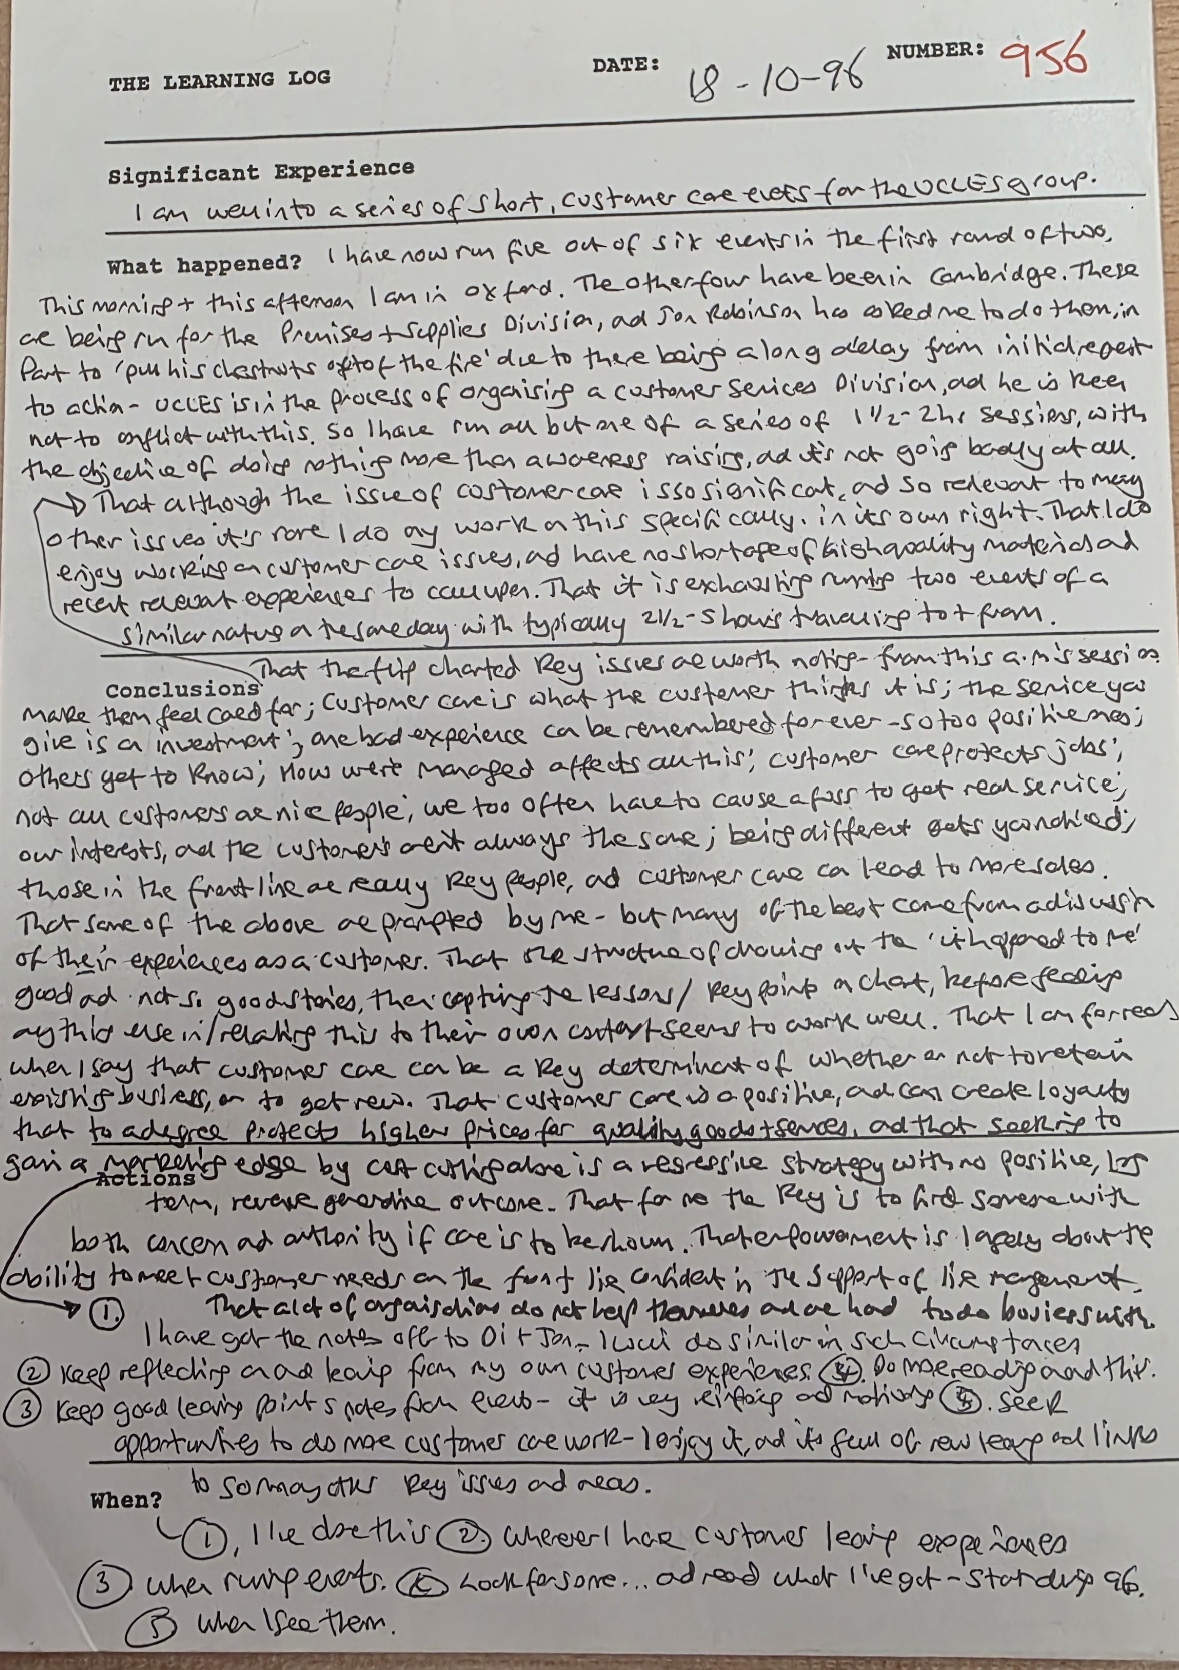 THE LEARNING LOG DATE: 18-10-96 NUMBER: 956
Significant Experience
I am well into a series of short, customer care events for the UCLES group.
What happened? I have now run five out of six events in the first round of two.
This morning + this afternoon I am in Oxford. The other four have been in Cambridge. These
are being run for the Premises + Supplies Division, and Jon Robinson has asked me to do them, in
part to 'pull his chestnuts out of the fire' due to there being a long delay from initial request
to action - UCLES is in the process of organising a Customer Services Division, and he is keen
not to conflict with this. So I have run all but one of a series of 1 1/2 - 2 hr sessions, with
the objective of doing nothing more than awareness raising, and it's not going badly at all.
→ That although the issue of customer care is so significant, and so relevant to many
other issues it's rare I do any work on this specifically, in its own right. That I do
enjoy working on customer care issues, and have no shortage of high quality materials and
recent relevant experiences to call upon. That it is exhausting running two events of a
similar nature on the same day with typically 2 1/2 - 5 hours travelling to + from.
That the flip charted key issues are worth noting - from this a.m's session
Conclusions
make them feel cared for; customer care is what the customer thinks it is; the service you
give is an 'investment'; one bad experience can be remembered for ever - so too positive ones;
others get to know; How we're managed affects all this; customer care protects jobs;
not all customers are nice people; we too often have to cause a fuss to get real service;
our interests, and the customer's aren't always the same; being different gets you noticed;
those in the front line are really key people, and customer care can lead to more sales.
That some of the above are prompted by me - but many of the best come from a discussion
of their experiences as a customer. That the structure of drawing out the 'it happened to me'
good and not so good stories, then capturing the lessons/key points on chart, before feeding
anything else in/relating this to their own context seems to work well. That I am for real
when I say that customer care can be a key determinant of whether or not to retain
existing business, or to get new. That customer care is a positive, and can create loyalty
that to a degree protects higher prices for quality goods + services, and that seeking to
gain a marketing edge by cost cutting alone is a regressive strategy with no positive, long
Actions
term, revenue generative outcome. That for me the key is to find someone with
both concern and authority if care is to be shown. That empowerment is largely about the
ability to meet customer needs on the front line confident in the support of line management.
That a lot of organisations do not help themselves and are hard to do business with.
① I have got the notes off to Di + Jon - I will do similar in such circumstances
② Keep reflecting on and learning from my own customer experiences ④. Do more reading around this.
③ Keep good learning points notes from events - it is very reinforcing and motivating ⑤. Seek
opportunities to do more customer care work - I enjoy it, and it's full of new learning and links
to so many other key issues and areas.
When?
①, I've done this ②. Whenever I have customer learning experiences
③ When running events. ④ Look for some... and read what I've got - start during 96.
⑤ When I see them.